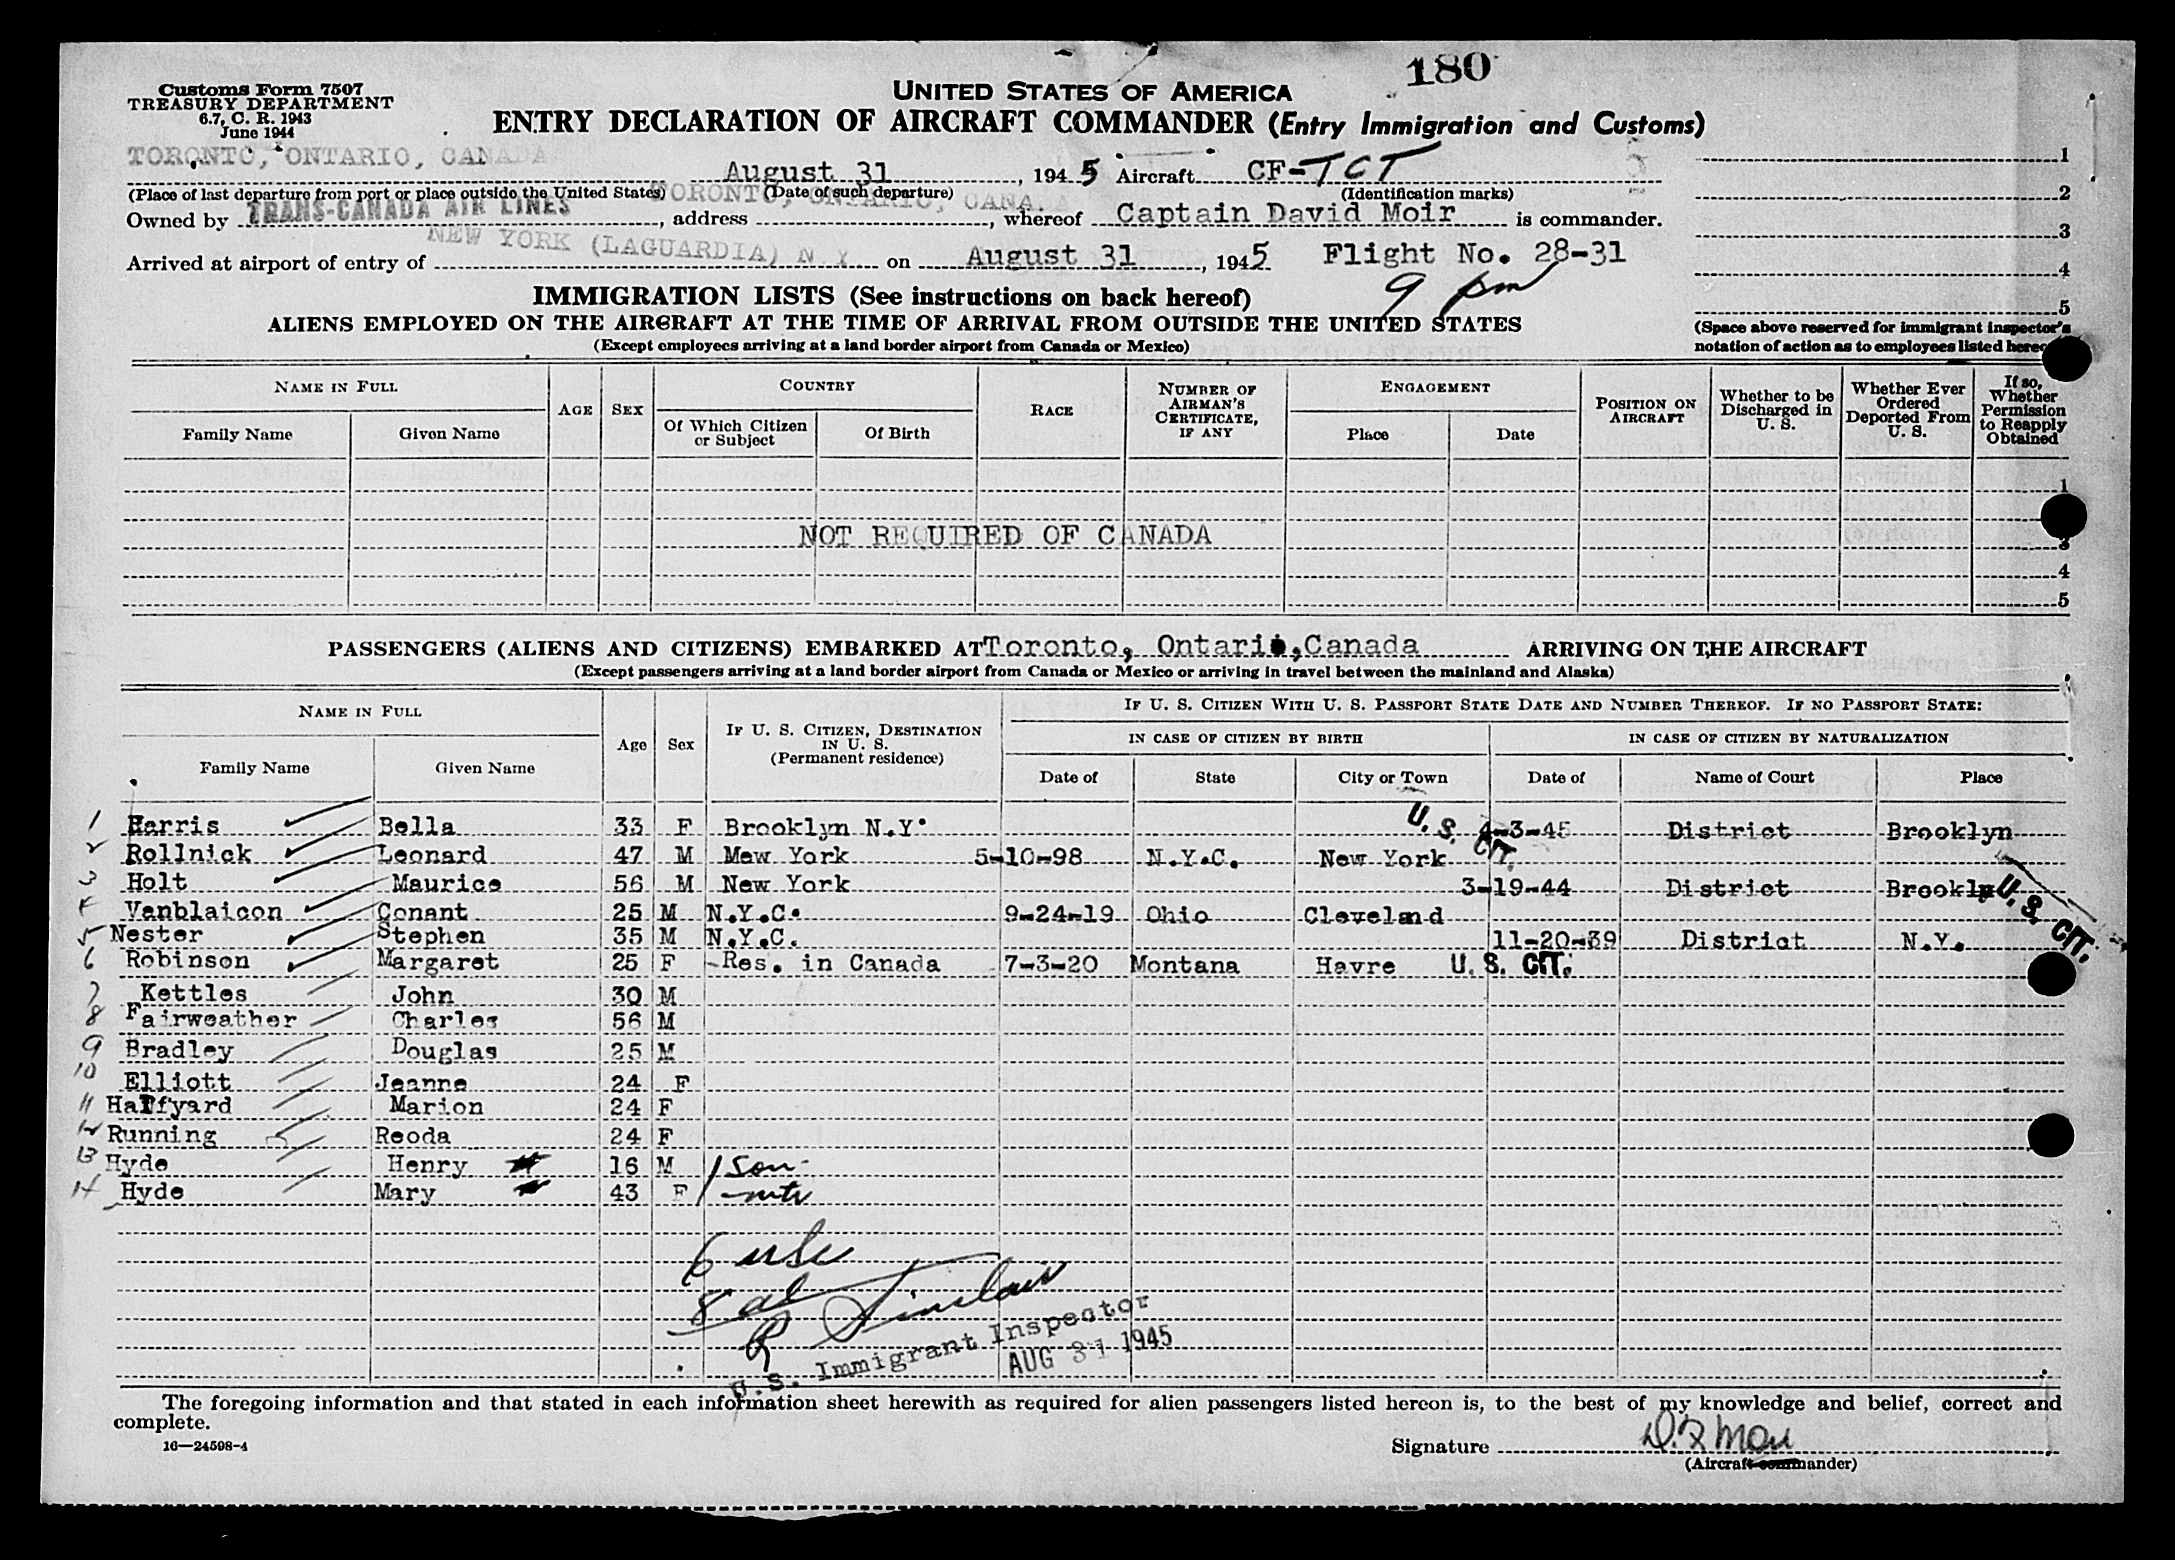 180
Customs Form 7507
TREASURY DEPARTMENT
6.7, C. R. 1943
June 1944
UNITED STATES OF AMERICA
ENTRY DECLARATION OF AIRCRAFT COMMANDER (Entry Immigration and Customs)
TORONTO, ONTARIO, CANADA August 31, 1945 Aircraft CF-TCT
(Place of last departure from port or place outside the United States) (Date of such departure) (Identification marks)
TORONTO, ONTARIO, CANA.
Owned by TRANS-CANADA AIR LINES, address, whereof Captain David Moir is commander.
Arrived at airport of entry of NEW YORK (LAGUARDIA) N Y on August 31, 1945 Flight No. 28-31
9 pm
1
2
3
4
5
(Space above reserved for immigrant inspector's
notation of action as to employees listed
IMMIGRATION LISTS (See instructions on back hereof)
ALIENS EMPLOYED ON THE AIRCRAFT AT THE TIME OF ARRIVAL FROM OUTSIDE THE UNITED STATES
(Except employees arriving at a land border airport from Canada or Mexico)
NAME IN FULL Family Name Given Name AGE SEX COUNTRY Of Which Citizen or Subject Of Birth RACE NUMBER OF AIRMAN'S CERTIFICATE, IF ANY ENGAGEMENT Place Date POSITION ON AIRCRAFT Whether to be Discharged in U. S. Whether Ever Ordered Deported From U. S. If so, Whether Permission to Reapply Obtained
1
NOT REQUIRED OF CANADA
3
4
5
PASSENGERS (ALIENS AND CITIZENS) EMBARKED AT Toronto, Ontario, Canada ARRIVING ON THE AIRCRAFT
(Except passengers arriving at a land border airport from Canada or Mexico or arriving in travel between the mainland and Alaska)
NAME IN FULL Family Name Given Name Age Sex IF U. S. CITIZEN, DESTINATION IN U. S. (Permanent residence) IF U. S. CITIZEN WITH U. S. PASSPORT STATE DATE AND NUMBER THEREOF. IF NO PASSPORT STATE:
IN CASE OF CITIZEN BY BIRTH IN CASE OF CITIZEN BY NATURALIZATION
Date of State City or Town Date of Name of Court Place
1 Harris Bella 33 F Brooklyn N.Y. U. S. CIT. 4-3-45 District Brooklyn
2 Rollnick Leonard 47 M Mew York 5-10-98 N.Y.C. New York
3 Holt Maurice 56 M New York 3-19-44 District Brookly U. S. CIT.
4 Vanblaicon Conant 25 M N.Y.C. 9-24-19 Ohio Cleveland
5 Nester Stephen 35 M N.Y.C. 11-20-39 District N.Y.
6 Robinson Margaret 25 F -Res. in Canada 7-3-20 Montana Havre U. S. CIT.
7 Kettles John 30 M
8 Fairweather Charles 56 M
9 Bradley Douglas 25 M
10 Elliott Jeanne 24 F
11 Halfyard Marion 24 F
12 Running Reoda 24 F
13 Hyde Henry 16 M son
14 Hyde Mary 43 F
6 usc
8 al
R Sinclair
U.S. Immigrant Inspector
AUG 31 1945
The foregoing information and that stated in each information sheet herewith as required for alien passengers listed hereon is, to the best of my knowledge and belief, correct and
complete.
16—24598-4
Signature D.F. Moir
(Aircraft commander)